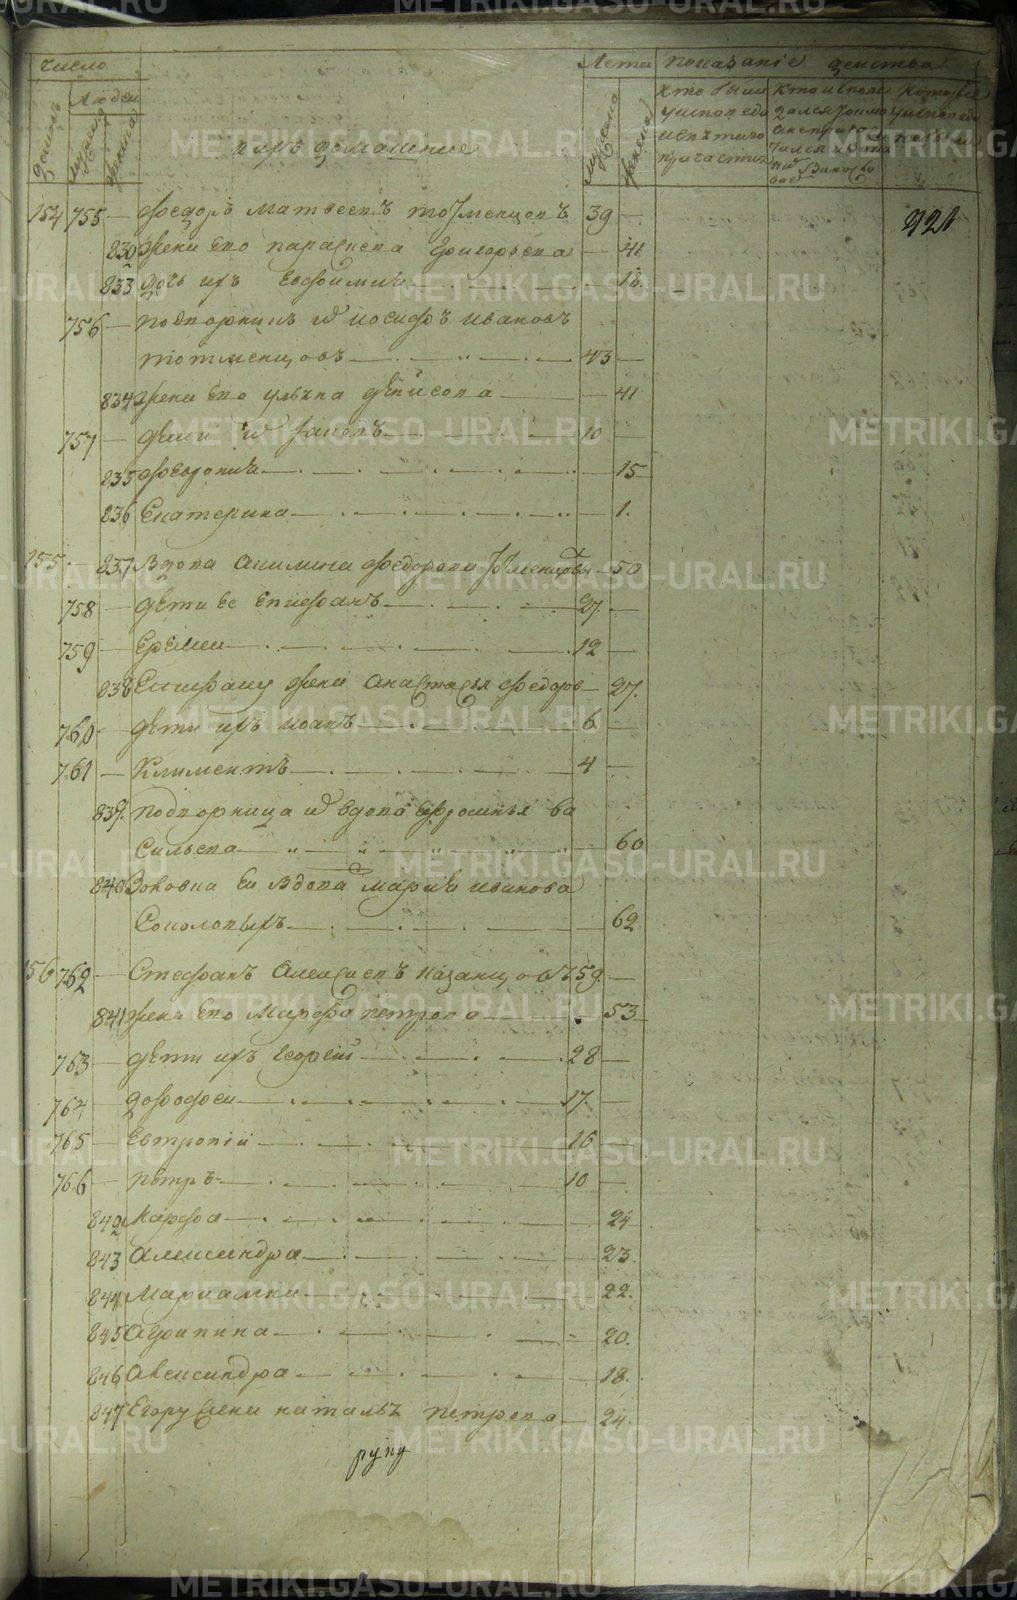 METRIKI.GASO-URAL.RU
число
Лета показаніе действа
Людей
домовъ
мужеска
женска
ихъ домашние
мужеска
женска
кто были у исповеди и святаго причастия
921
154 755 — Федоръ Матвеевъ тотменцовъ 39 —
830 жена ево параскева григорьева — 41
833 дочь ихъ Евфимия — 16.
756 — подворникъ иосифъ ивановъ
тотменцовъ — 43 —
834 жена ево ульяна денисова — 41
757 — дети и яковъ — 10 —
835 Феврония — 15
836 Екатерина — 1.
155 — 837 Вдова Акилина Федорова тотменцовы — 50
758 — дети ее Епифанъ — 27. —
759 — Еремеи — 12 —
838 Епифану жена Анастасья Федоров — 27.
760 — дети ихъ иоанъ — 6 —
761 — Климентъ — 4 —
839. подворница и вдова Ефросинья ва
сильева — 60
840 вдова мария иванова
Соколовыхъ — 62
156 762 — Стефанъ Алексеевъ казанцовъ 59. —
841 жена ево Марфа петрова — 53
763 — дети ихъ георгіи — 28 —
764 — дорофеи — 17. —
765 — Евтропіи — 16 —
766 — петръ — 10 —
842 Марфа — 24
843 Александра — 23.
844 Мариамна — 22.
845 Агрипина — 20.
846 Александра — 18.
847 Егору жена наталья петрова — 24.
руку